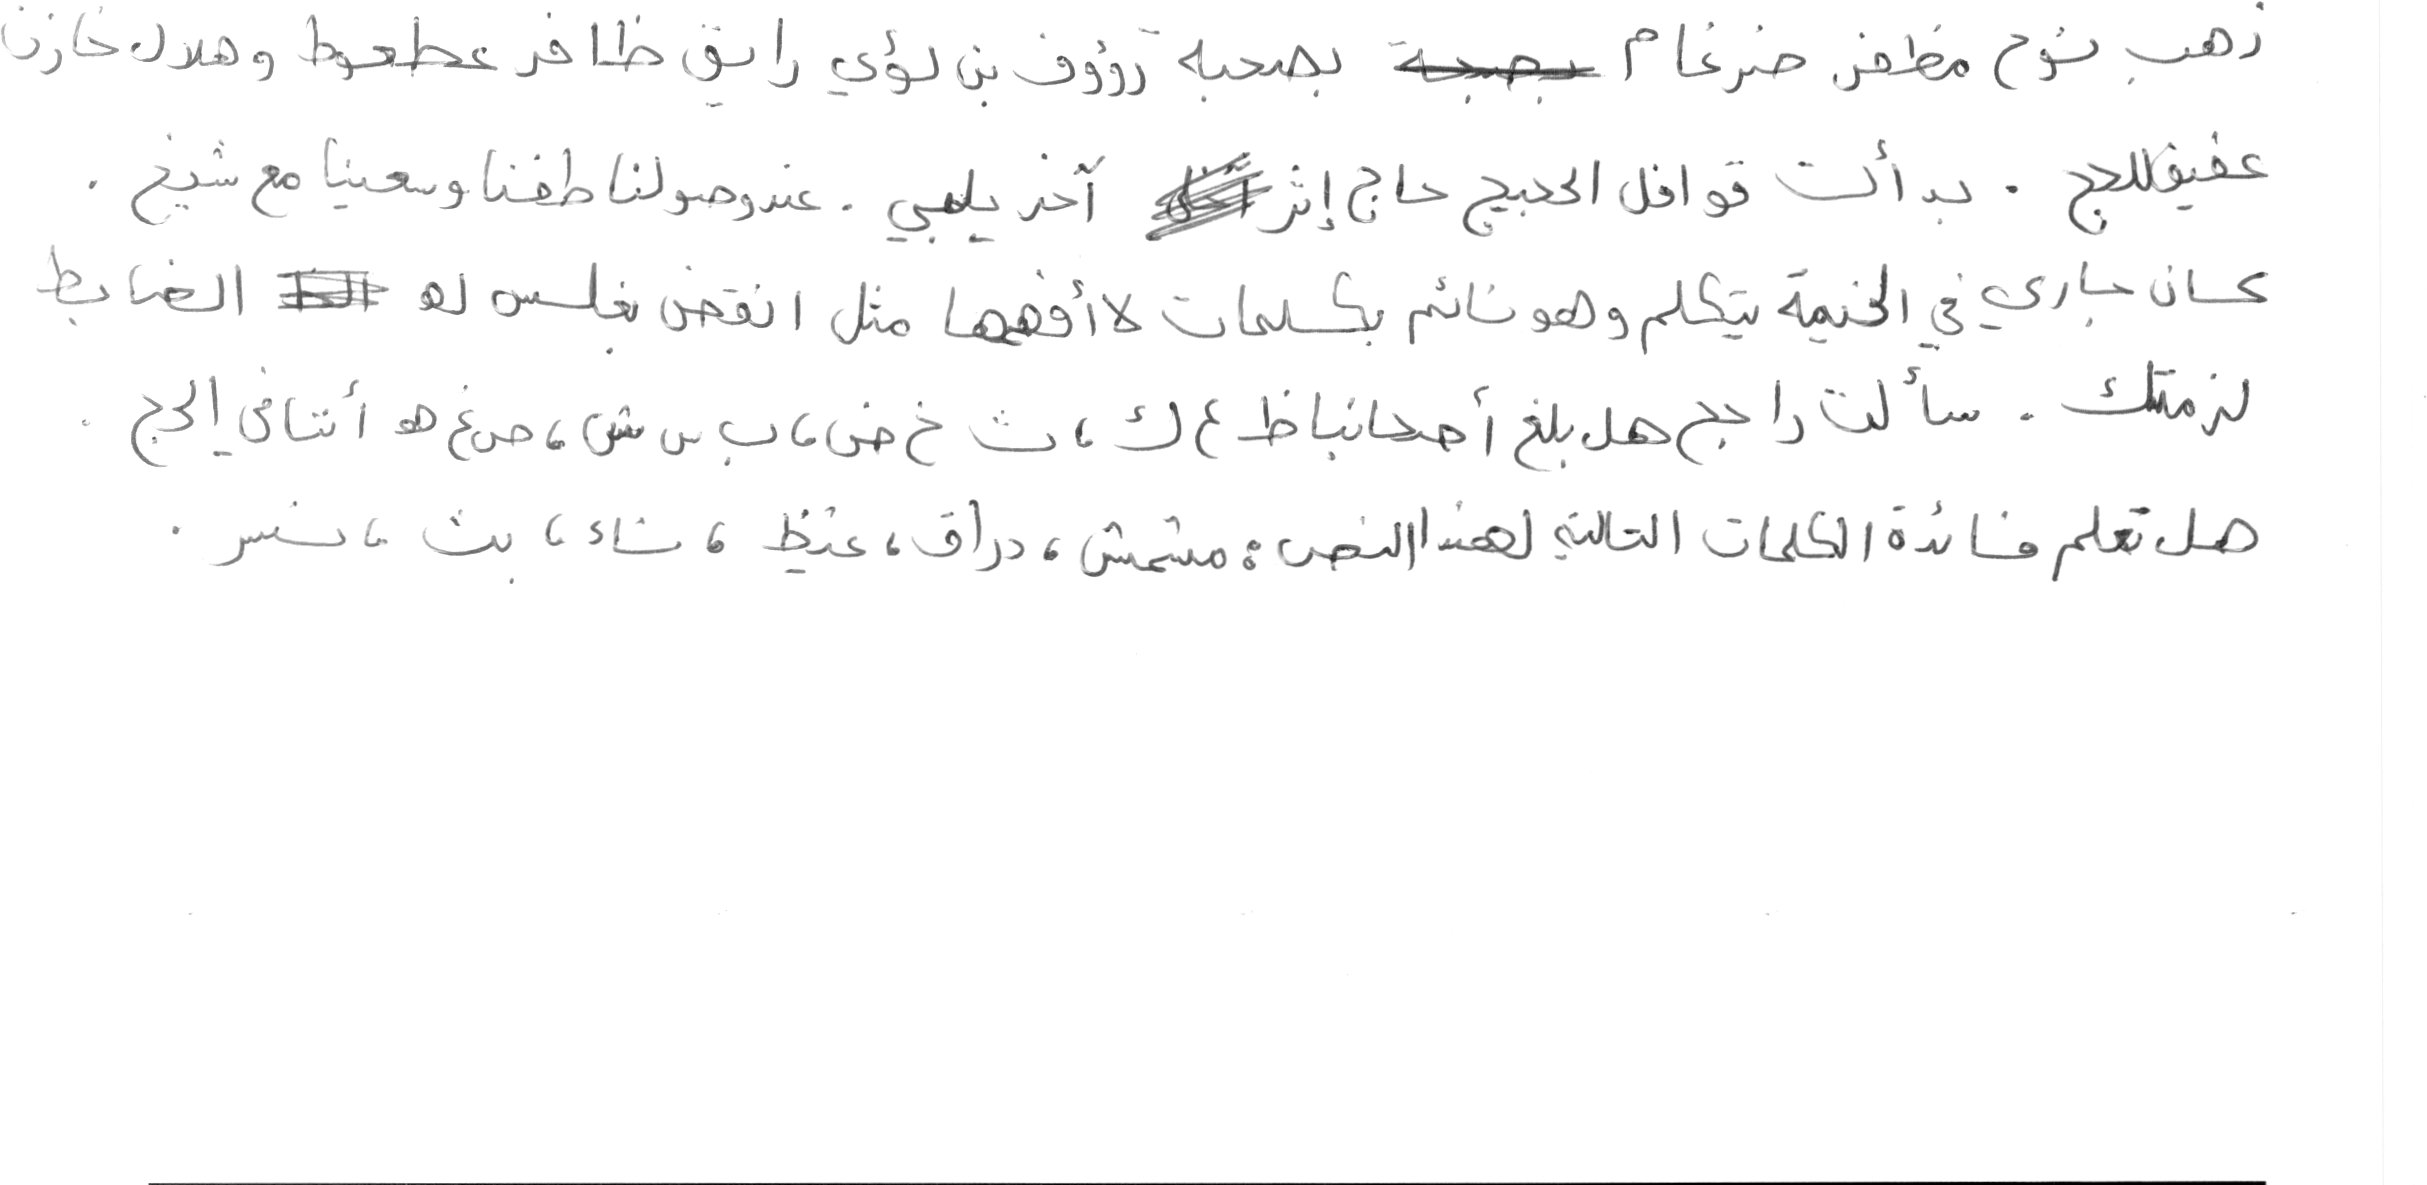 ذهب نوح مظفر ضرغام بصحبه رؤوف بن لؤي رايق ظافر عطعوط وهلال خازن
عفيف للحج . بدأت قوافل الحجيج حاج إثر آخر يلبي . عند وصولنا طفنا وسعينا مع شيخ .
كان جاري في الخيمة يتكلم وهو نائم بكلمات لا أفهمها مثل انقض بغلس لهو الضابط
لزمتك . سألت راجح هل بلغ أصحابنا ظ ع ك ، ث خ ض ، ب س ش ، ص غ هو أثنا في الحج .
هل تعلم فائدة الكلمات التالية لهذا النص : مشمش ، دراق ، غيظ ، شاء ، بث ، نسر .